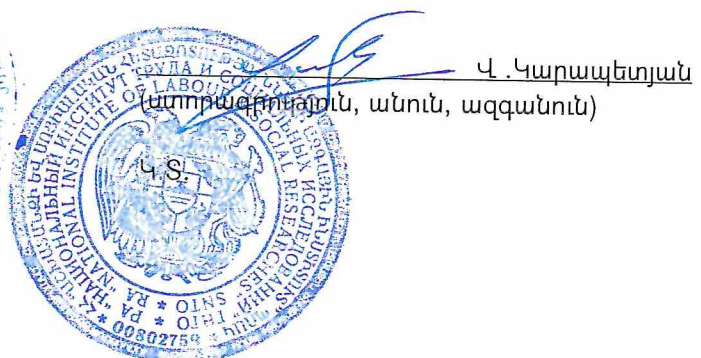 Վ .Կարապետյան
(ստորագրություն, անուն, ազգանուն)
Կ.Տ.
"НАЦИОНАЛЬНЫЙ ИНСТИТУТ ТРУДА И СОЦИАЛЬНЫХ ИССЛЕДОВАНИЙ" ГНТО * РА
"NATIONAL INSTITUTE OF LABOUR SOCIAL RESEARCHES" SNTO * RA